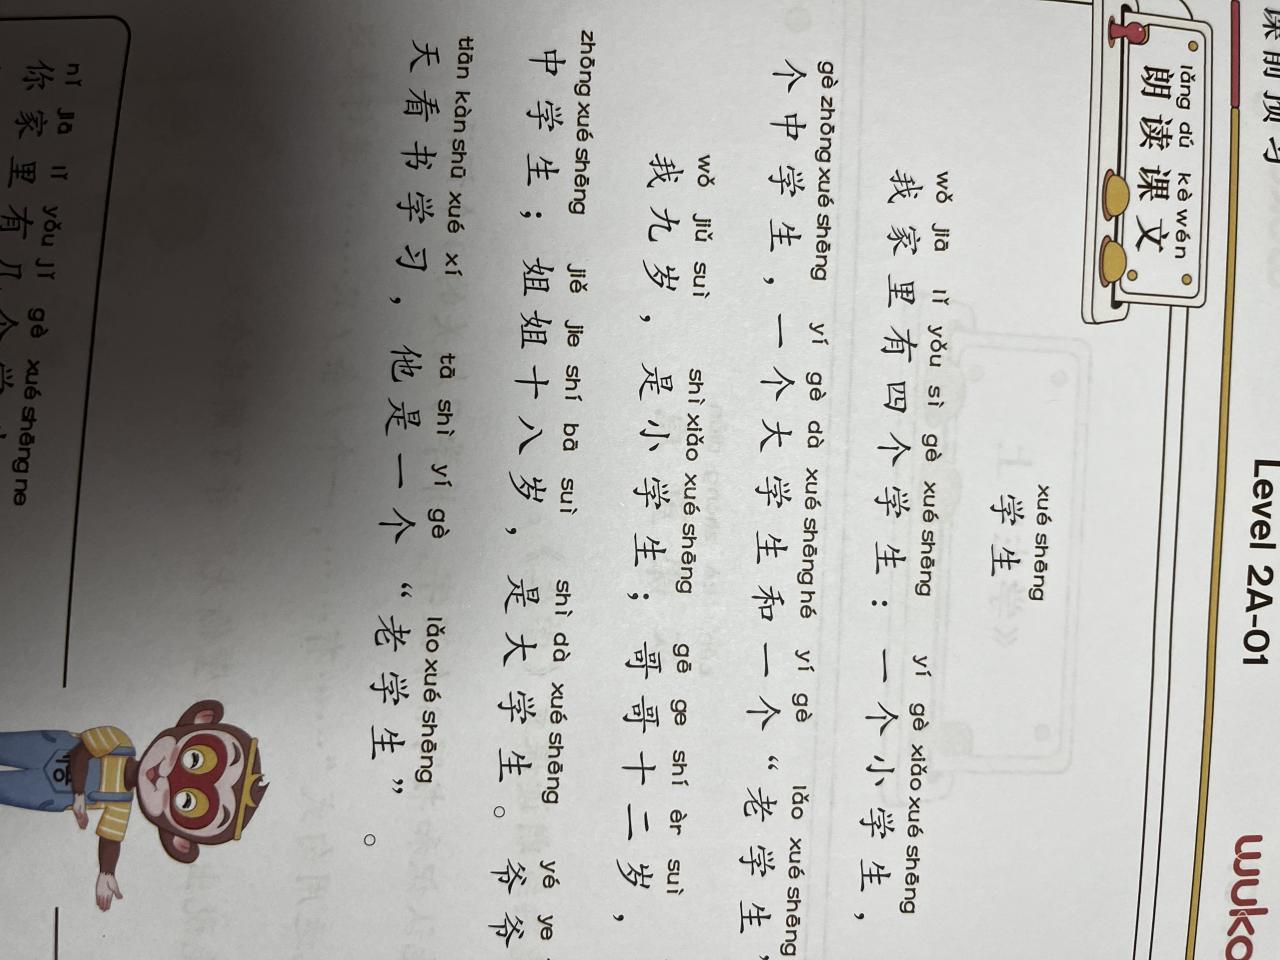 课前预习
Level 2A-01
wuko
lǎng dú kè wén
朗读课文
xué shēng
学生
wǒ jiā lǐ yǒu sì gè xué shēng yí gè xiǎo xué shēng
我家里有四个学生：一个小学生，
gè zhōng xué shēng yí gè dà xué shēng hé yí gè lǎo xué shēng
个中学生，一个大学生和一个“老学生
wǒ jiǔ suì shì xiǎo xué shēng gē ge shí èr suì
我九岁，是小学生；哥哥十二岁，
zhōng xué shēng jiě jie shí bā suì shì dà xué shēng yé ye
中学生；姐姐十八岁，是大学生。爷爷
tiān kàn shū xué xí tā shì yí gè lǎo xué shēng
天看书学习，他是一个“老学生”。
nǐ jiā lǐ yǒu jǐ gè xué shēng ne
你家里有几个学